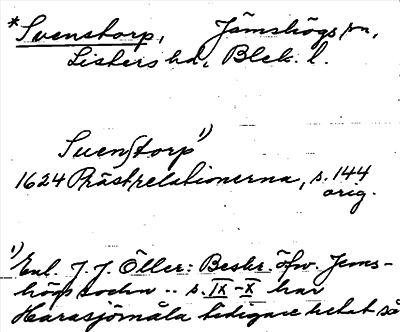 *Svenstorp, Jämshögs sn,
Listers hd, Blek. l.
Suenstorp 1)
1624 Prästrelationerna, s. 144
orig.
1) Enl. J. J. Öller: Beskr. öfv. Jems-
högs socken .. s. IX-X har
Harasjömåla tidigare hetat så